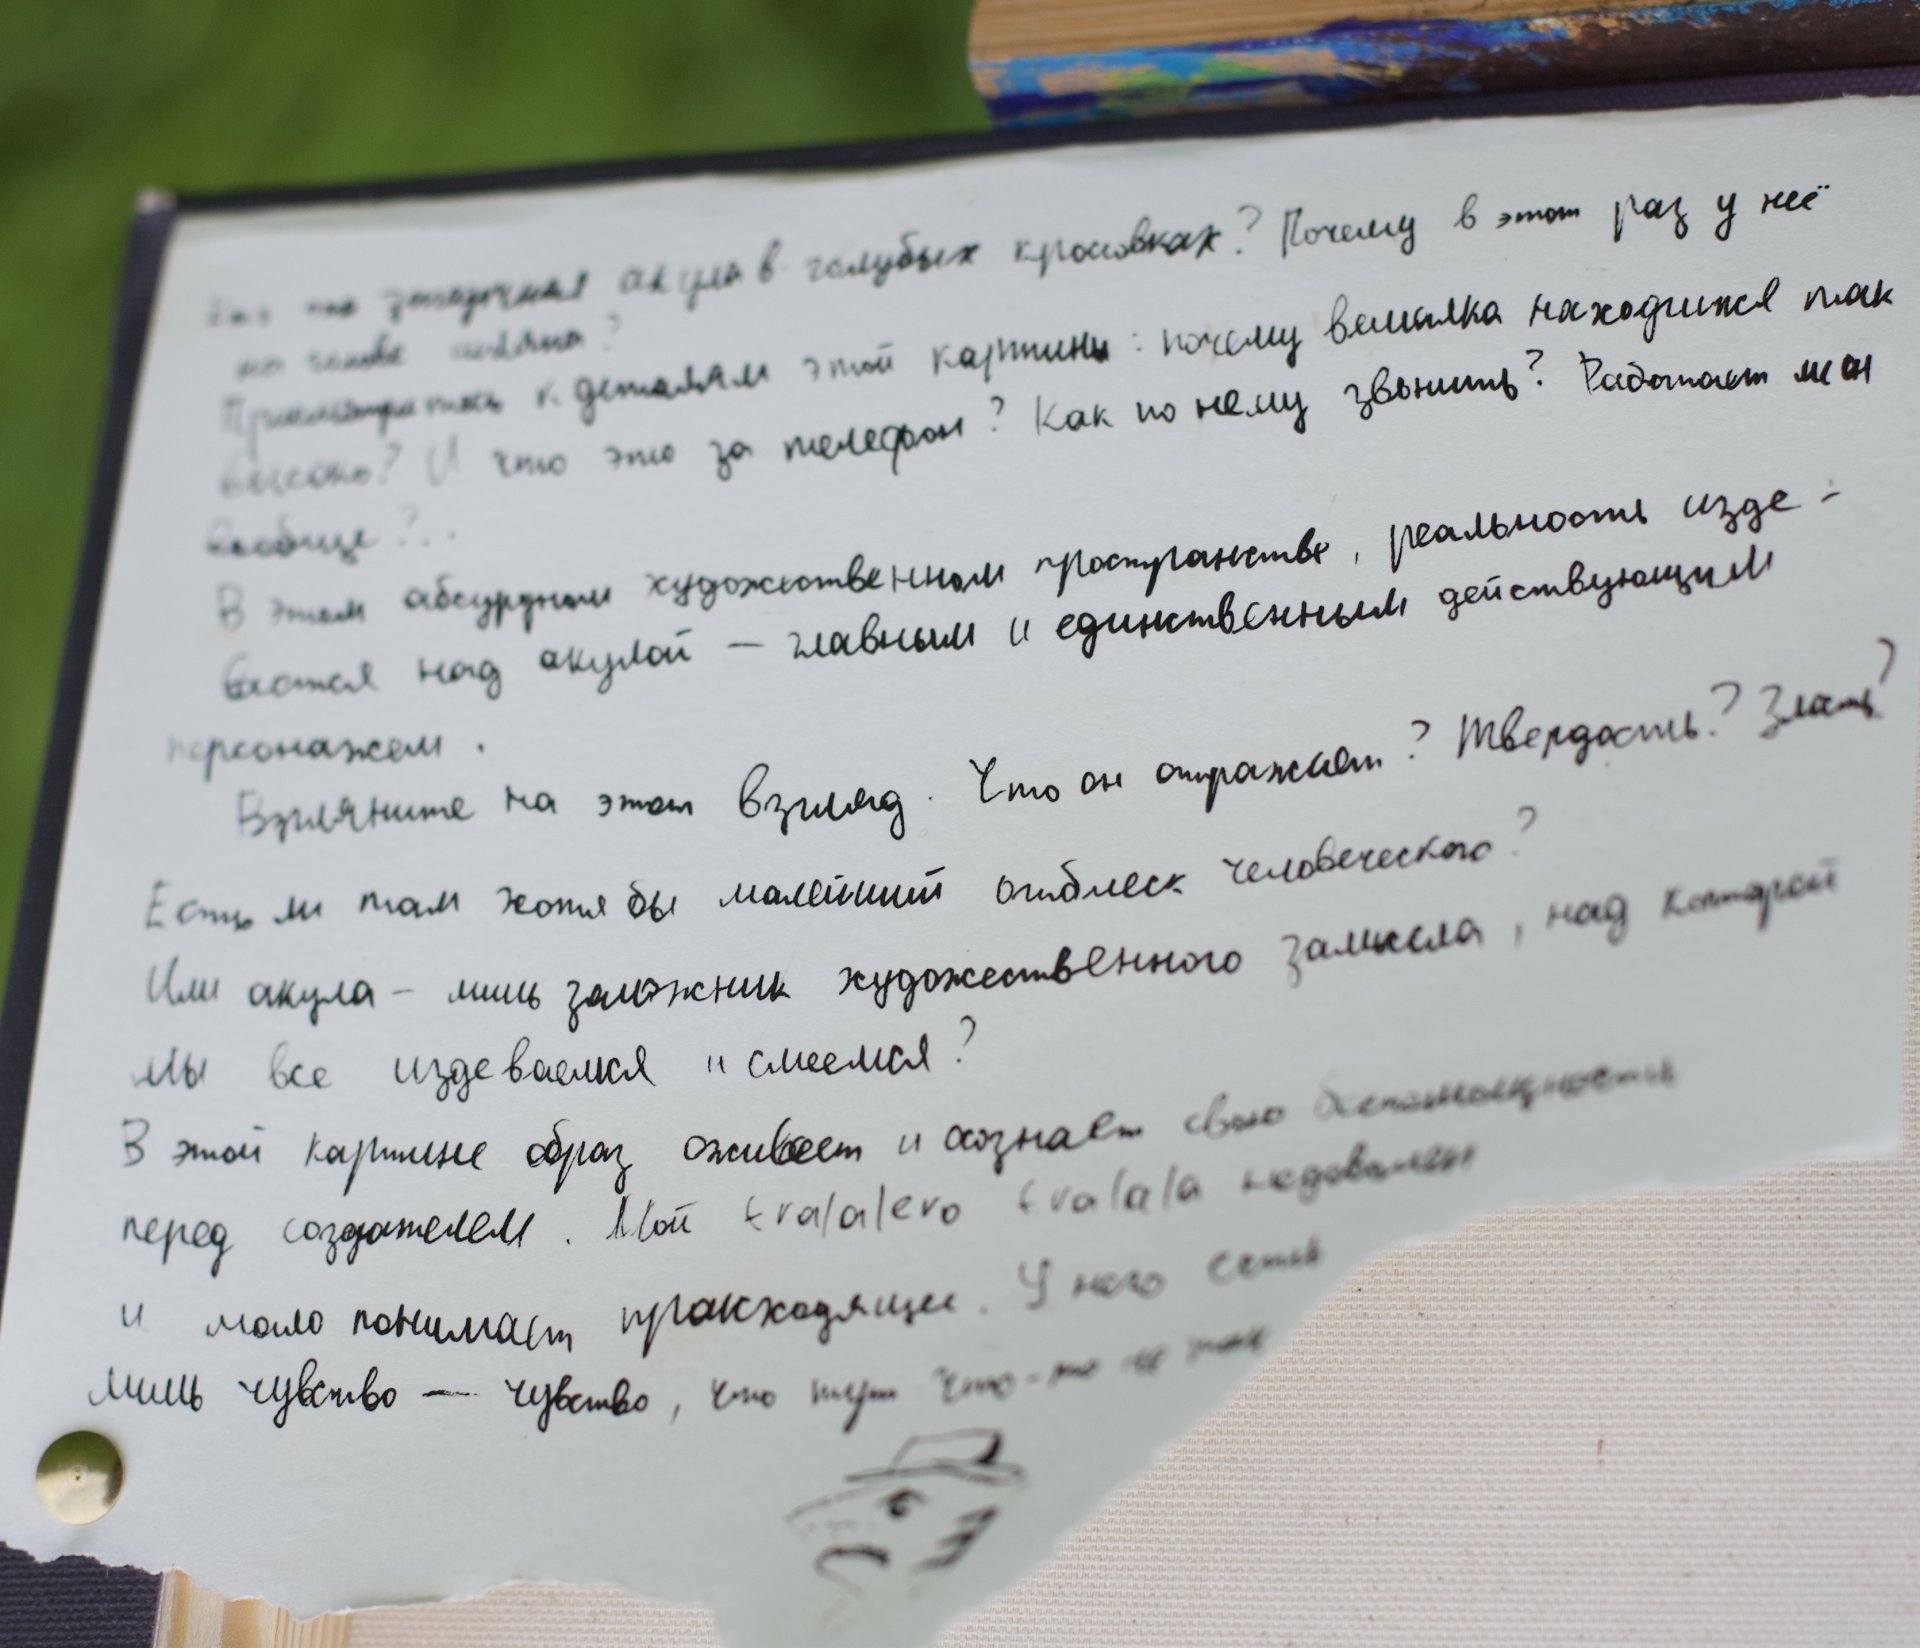 Кто эта загадочная акула в голубых кросовках? Почему в этот раз у неё
на голове шляпа?
Присмотритесь к деталям этой картины: почему вешалка находится так
высоко? И что это за телефон? Как по нему звонить? Работает ли он
вообще?..
В этом абсурдном художественном пространстве, реальность изде-
вается над акулой — главным и единственным действующим
персонажем.
Взгляните на этот взгляд. Что он отражает? Твердость? Злость?
Есть ли там хотя бы малейший отблеск человеческого?
Или акула - лишь заложник художественного замысла, над которой
мы все издеваемся и смеемся?
В этой картине образ оживает и осознает свою беспомощность
перед создателем. Мой tralalero tralala недоволен
и мало понимает происходящее. У него есть
лишь чувство — чувство, что тут что-то не так